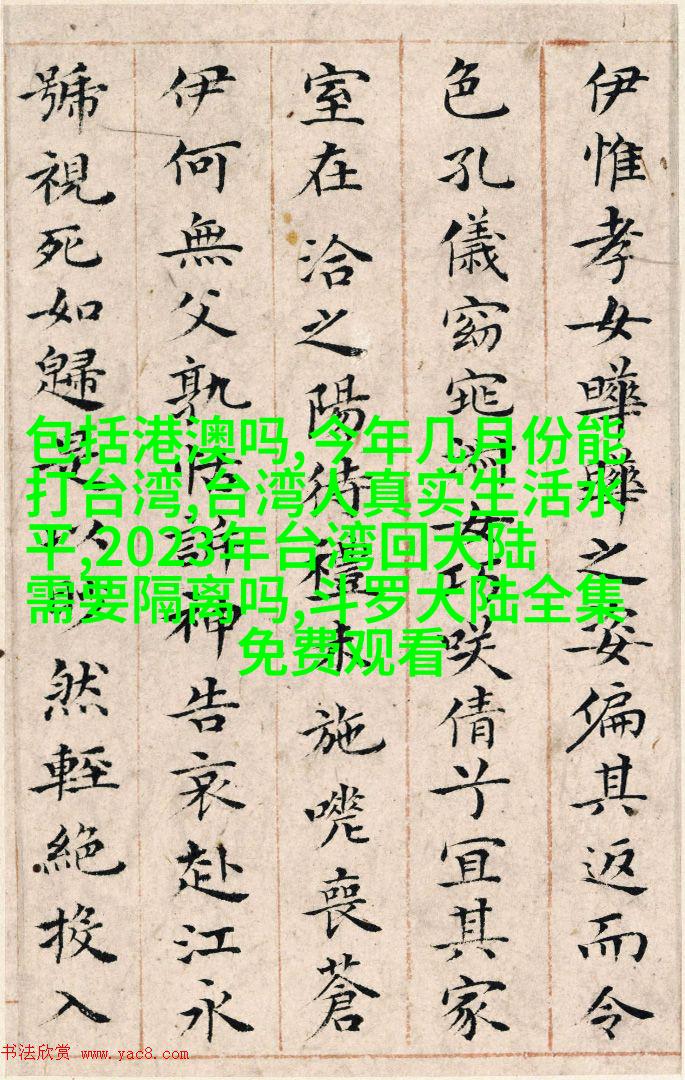 伊惟孝女曄曄之姿偏其返而令
色孔儀窈窕淑女巧咲倩兮宜其家
室在洽之陽待禮未施嗟喪蒼
伊何無父孰怙訴神告哀赴江永
號視死如歸是以眇然輕絕投入
包括港澳吗,今年几月份能
打台湾,台湾人真实生活水
平,2023年台湾回大陆
需要隔离吗,斗罗大陆全集
免费观看
书法欣赏 www.yac8.com